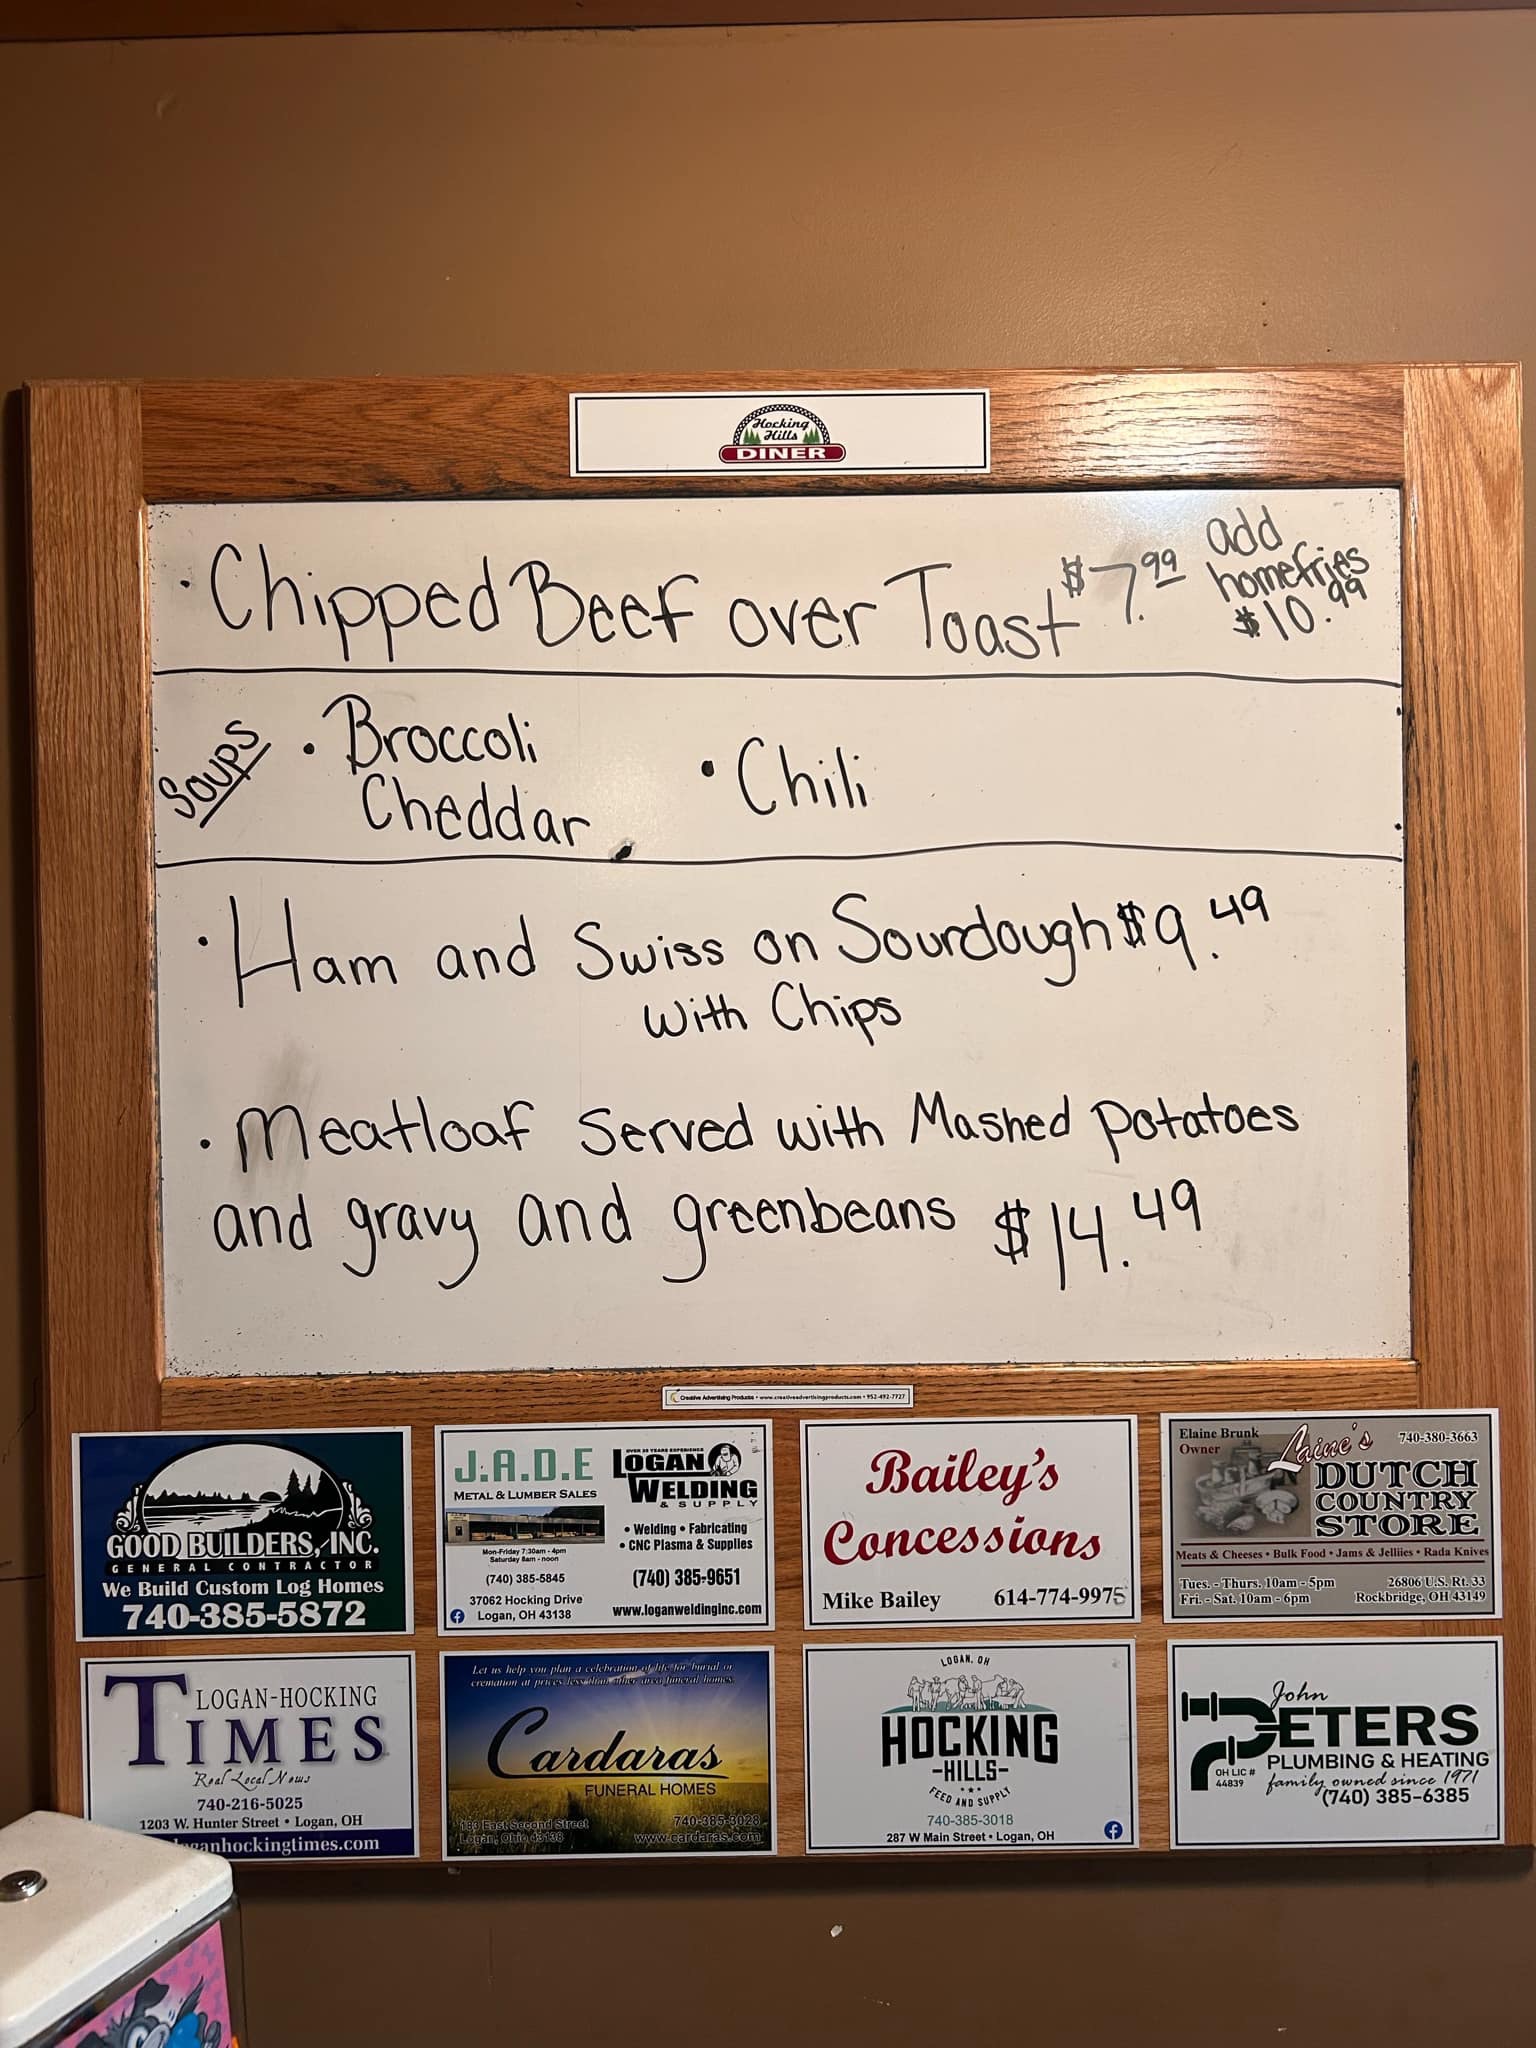 Hocking
Hills
DINER
• Chipped Beef over Toast $7.99 add
homefries
$10.99
Soups • Broccoli
Cheddar
• Chili
• Ham and Swiss on Sourdough $9.49
with Chips
• Meatloaf served with Mashed potatoes
and gravy and greenbeans $14.49
Creative Advertising Products • www.creativeadvertisingproducts.com • 952-492-7727
GOOD BUILDERS, INC.
GENERAL CONTRACTOR
We Build Custom Log Homes
740-385-5872
J.A.D.E
METAL & LUMBER SALES
Mon-Friday 7:30am - 4pm
Saturday 8am - noon
(740) 385-5845
37062 Hocking Drive
Logan, OH 43138
OVER 25 YEARS EXPERIENCE
LOGAN
WELDING
& SUPPLY
• Welding • Fabricating
• CNC Plasma & Supplies
(740) 385-9651
www.loganweldinginc.com
Bailey's
Concessions
Mike Bailey 614-774-9975
Elaine Brunk
Owner
740-380-3663
Laine's
DUTCH
COUNTRY
STORE
Meats & Cheeses • Bulk Food • Jams & Jellies • Rada Knives
Tues. - Thurs. 10am - 5pm
Fri. - Sat. 10am - 6pm
26806 U.S. Rt. 33
Rockbridge, OH 43149
LOGAN-HOCKING
TIMES
Real Local News
740-216-5025
1203 W. Hunter Street • Logan, OH
loganhockingtimes.com
Let us help you plan a celebration of life for burial or
cremation at prices less than other area funeral homes.
Cardaras
FUNERAL HOMES
183 East Second Street
Logan, Ohio 43138
740-385-3028
www.cardaras.com
LOGAN, OH
HOCKING
-HILLS-
FEED AND SUPPLY
740-385-3018
287 W Main Street • Logan, OH
John
PETERS
PLUMBING & HEATING
OH LIC #
44839
family owned since 1971
(740) 385-6385